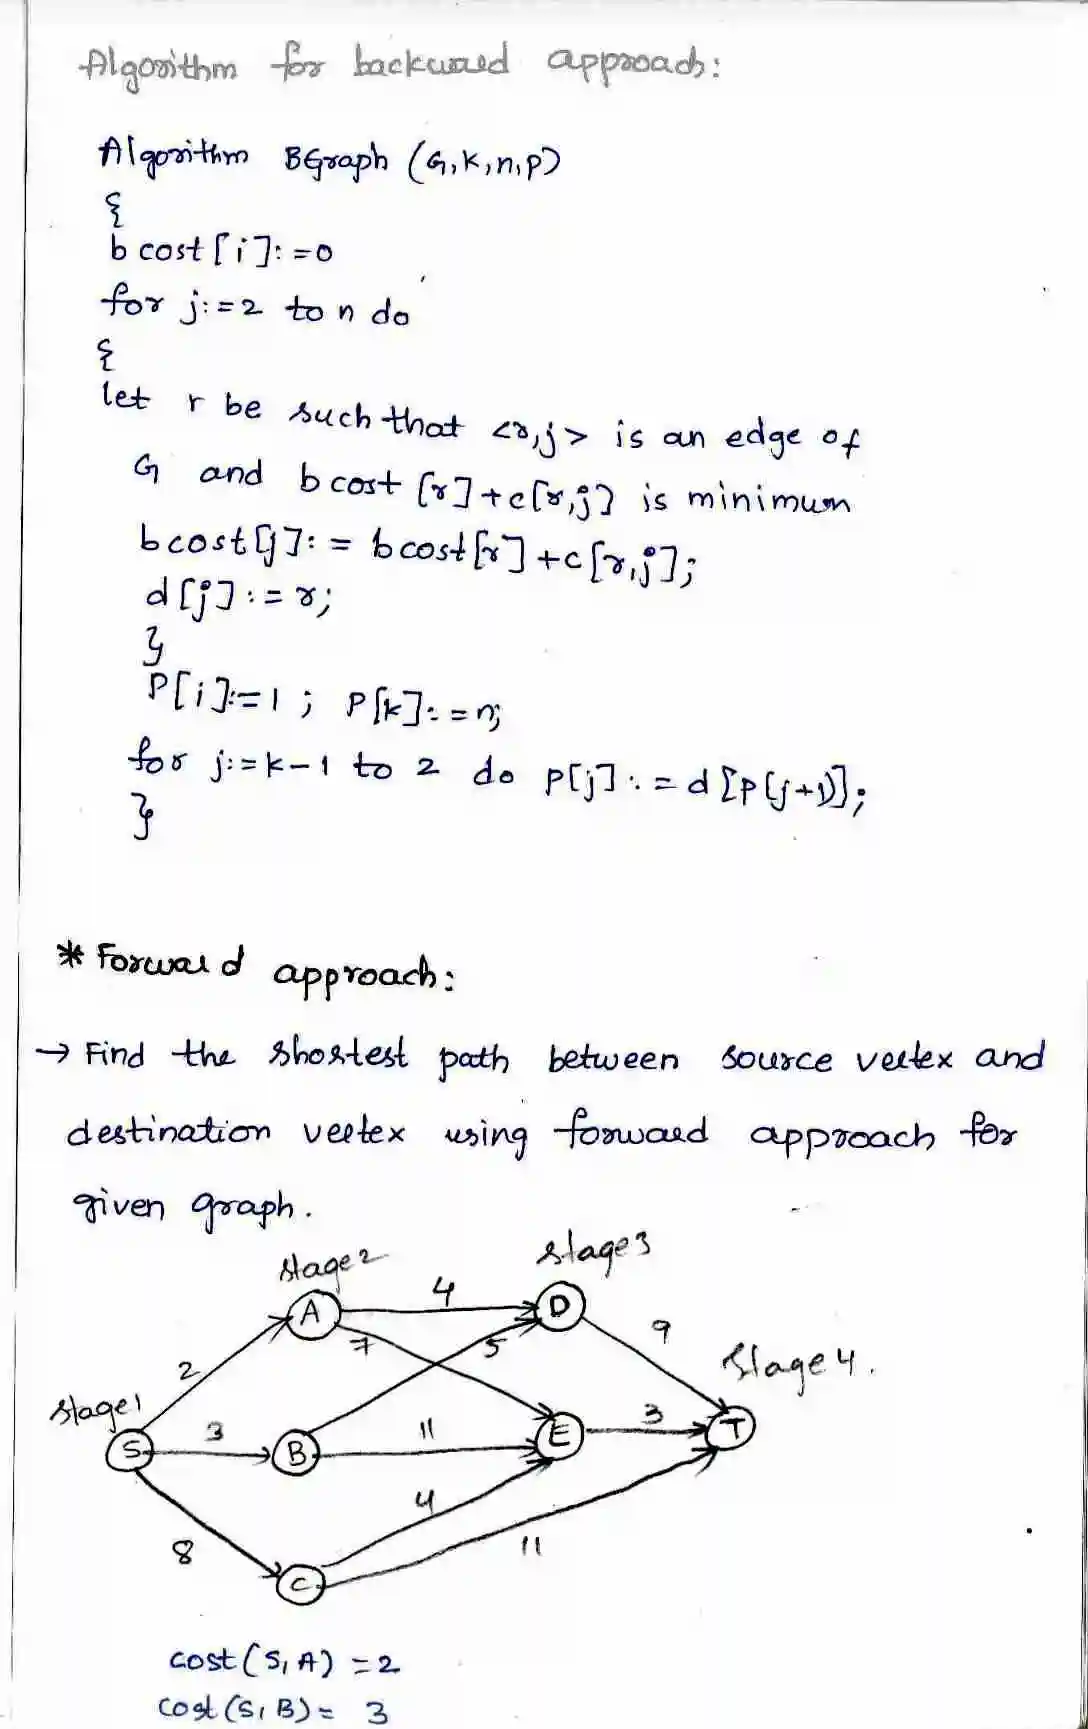 Algorithm for backward approach:
Algorithm BGraph (G,k,n,p)
{
bcost[i]:=0
for j:=2 to n do
{
let r be such that <r,j> is an edge of
G and bcost[r]+c[r,j] is minimum
bcost[j]:= bcost[r]+c[r,j];
d[j]:=r;
}
P[i]:=1; P[k]:=n;
for j:=k-1 to 2 do P[j]:=d[P(j+1)];
}
* Forward approach:
→ Find the shortest path between source vertex and
destination vertex using forward approach for
given graph.
stage 2 stage 3
4
A D
7 5 9
2 stage 4.
stage 1
3 11 3
S B E T
4
8 11
C
cost(S,A) = 2
cost(S,B) = 3